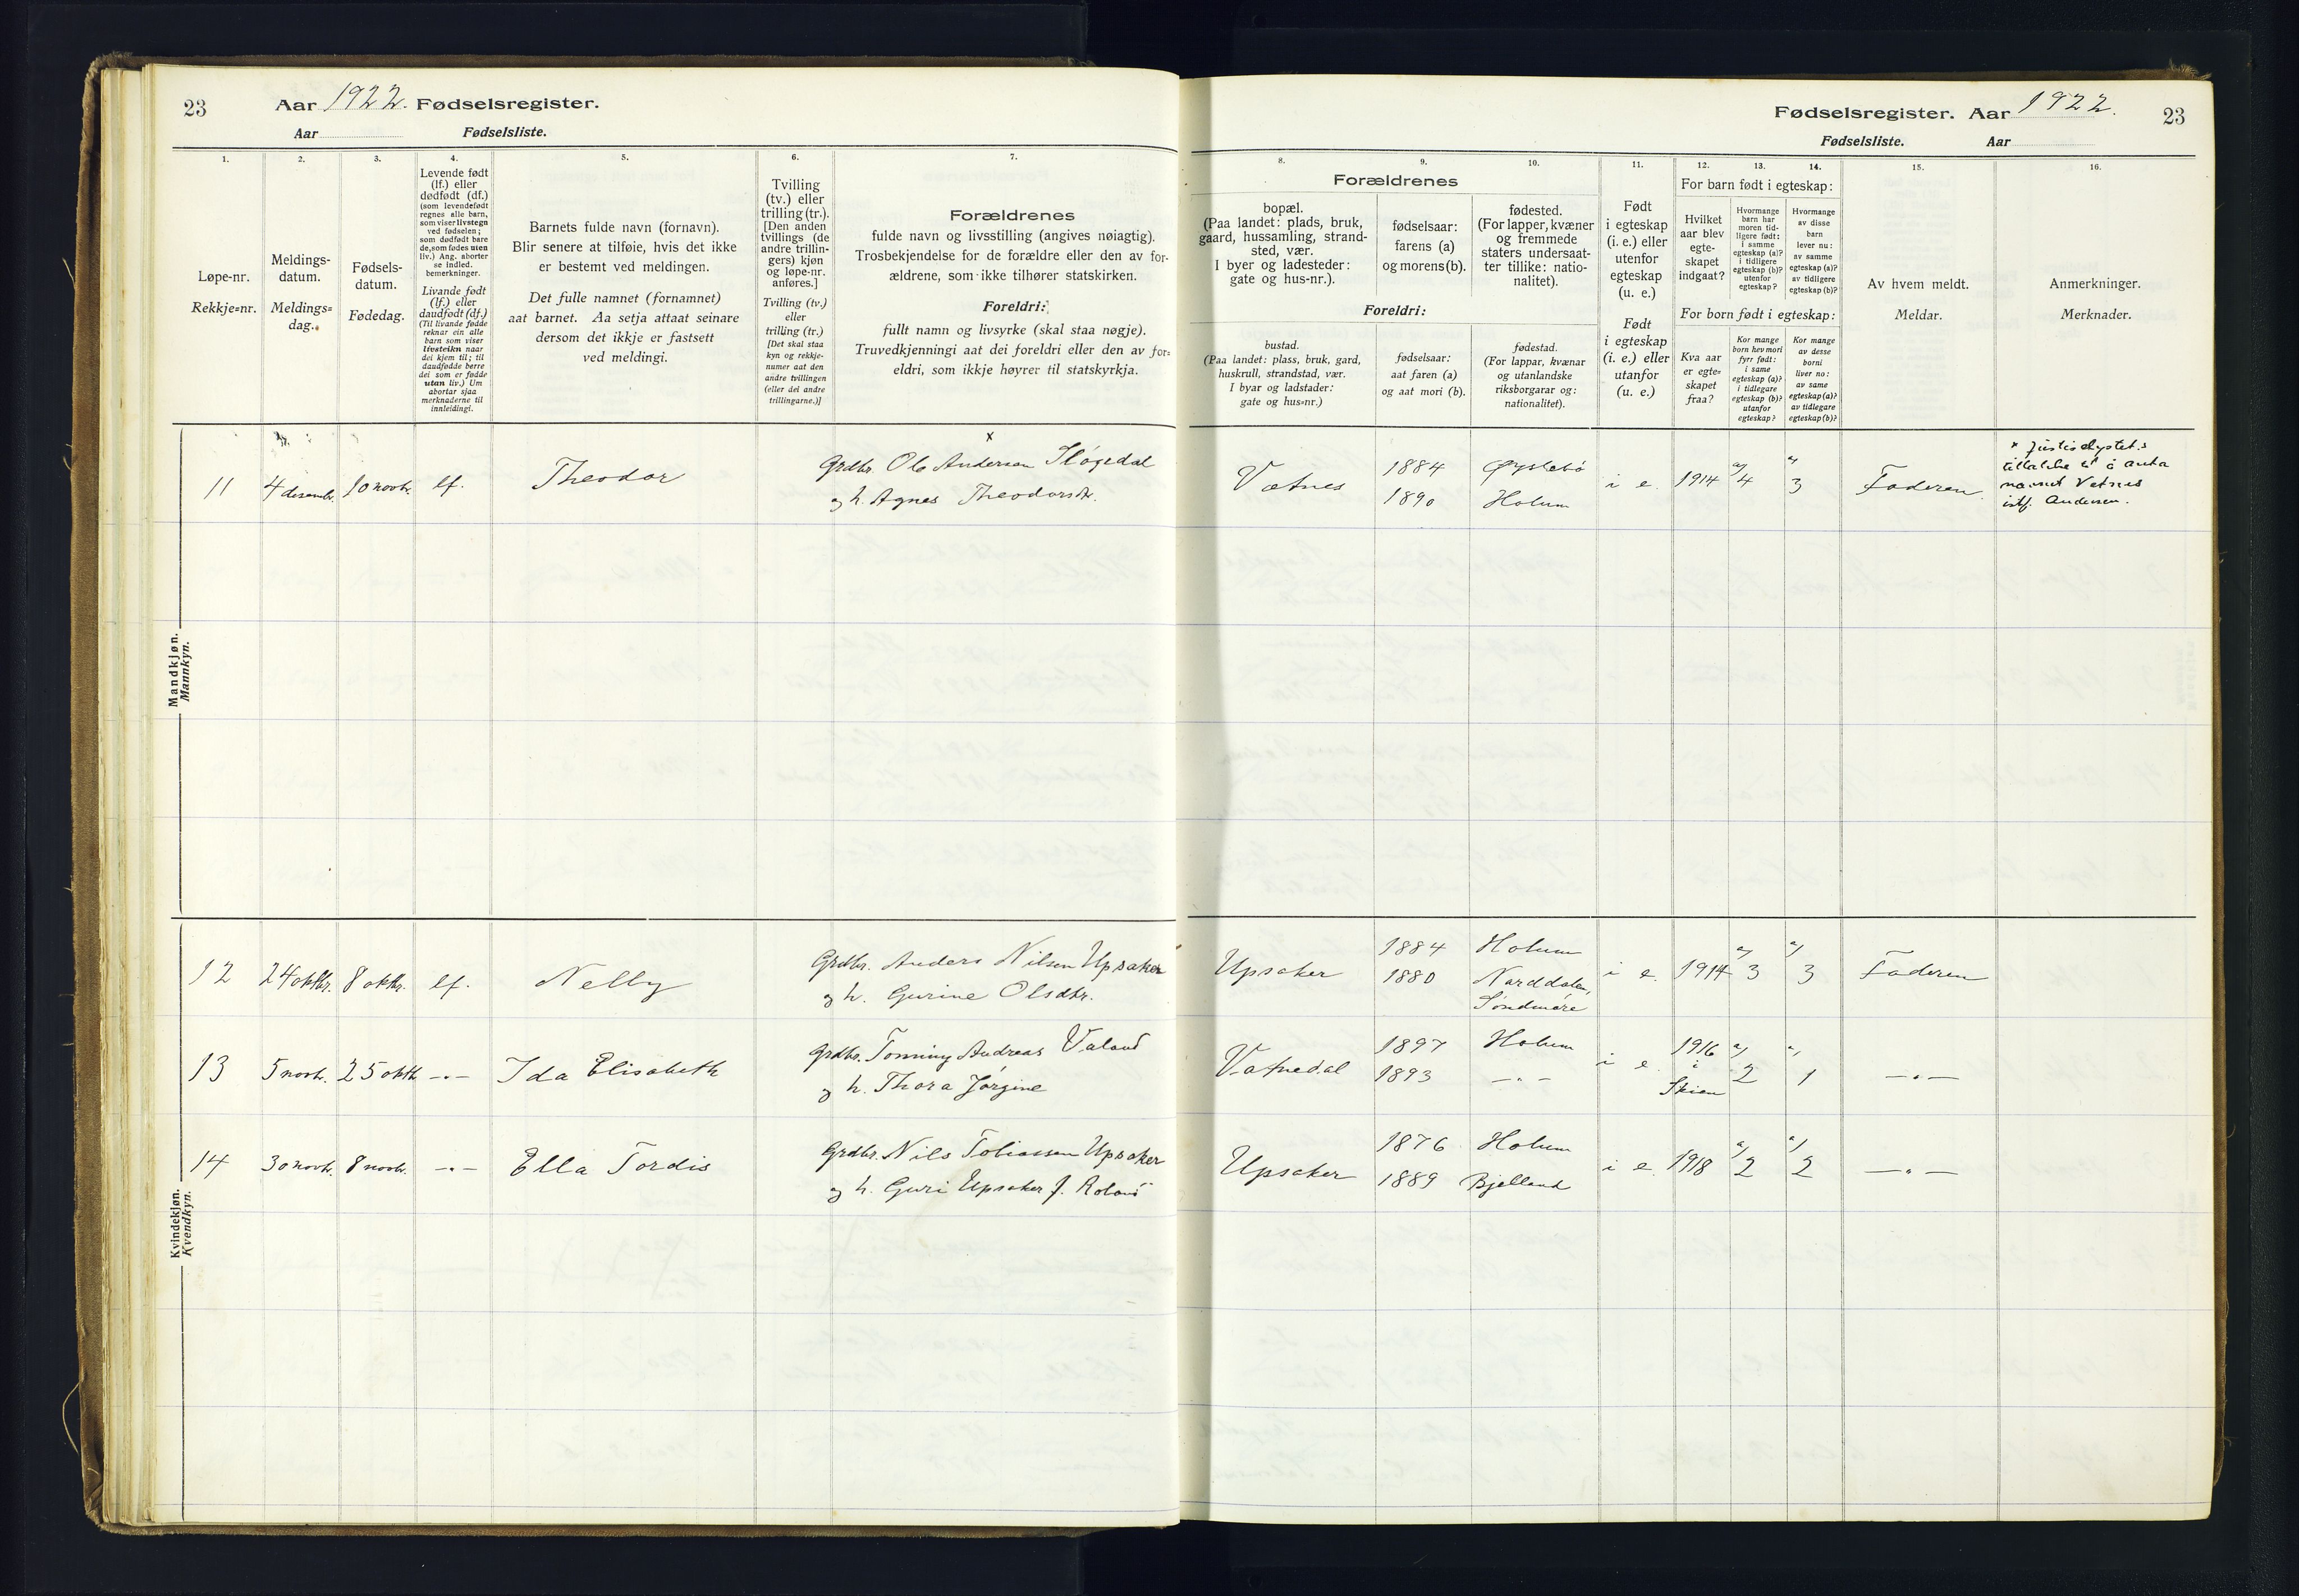 23 Aar 1922. Fødselsregister.
Aar Fødselsliste.
1. 2. 3. 4. 5. 6. 7.
Løpe-nr.
Rekkje=nr.
Meldings-
datum.
Meldings=
dag.
Fødsels-
datum.
Fødedag.
Levende født
(lf.) eller
dødfødt (df.)
(som levendefødt
regnes alle barn,
som viser livstegn
ved fødselen;
som dødfødt bare
de, som fødes uten
liv.) Ang. aborter
se indled.
bemerkninger.
Livande født
(lf.) eller
daudfødt (df.)
(Til livande fødde
reknar ein alle
barn som viser
livsteikn naar
dei kjem til; til
daudfødde berre
dei som er fødde
utan liv.) Um
abortar sjaa
merknaderne til
innleidingi.
Barnets fulde navn (fornavn).
Blir senere at tilføie, hvis det ikke
er bestemt ved meldingen.
Det fulle namnet (fornamnet)
aat barnet. Aa setja attaat seinare
dersom det ikkje er fastsett
ved meldingi.
Tvilling
(tv.) eller
trilling (tr.).
[Den anden
tvillings (de
andre trillin-
gers) kjøn
og løpe-nr.
anføres.]
Tvilling (tv.)
eller
trilling (tr.)
[Det skal staa
kyn og rekkje-
numer aat den
andre tvillingen
(eller dei andre
trillingarne.)]
Forældrenes
fulde navn og livsstilling (angives nøiagtig).
Trosbekjendelse for de forældre eller den av for-
ældrene, som ikke tilhører statskirken.
Foreldri:
fullt namn og livsyrke (skal staa nøgje).
Truvedkjenningi aat dei foreldri eller den av for=
eldri, som ikkje høyrer til statskyrkja.
Mandkjøn.
Mannkyn.
11 4 desembr. 10 novbr. lf. Theodor
x
Grdbr. Ole Andersen Sløgedal
og h. Agnes Theodorsdtr.
Kvindekjøn.
Kvendkyn.
12 24 oktbr. 8 oktbr. lf. Nelly
Grdbr. Anders Nilsen Upsaker
og h. Gurine Olsdtr.
13 5 novbr. 25 oktb. -"- Ida Elisabeth
Grdbr. Tønning Andreas Valand
og h. Thora Jørgine
14 30 novbr. 8 novbr. -"- Ella Tordis
Grdbr. Nils Tobiassen Upsaker
og h. Guri Upsaker f. Roland
Fødselsregister. Aar 1922. 23
Fødselsliste. Aar
8. 9. 10. 11. 12. 13. 14. 15. 16.
Forældrenes
bopæl.
(Paa landet: plads, bruk,
gaard, hussamling, strand-
sted, vær.
I byer og ladesteder:
gate og hus-nr.).
fødselsaar:
farens (a)
og morens (b).
fødested.
(For lapper, kvæner
og fremmede
staters undersaat-
ter tillike: natio-
nalitet).
Foreldri:
bustad.
(Paa landet: plass, bruk, gard,
huskrull, strandstad, vær.
I byar og ladstader:
gate og hus=nr.)
fødselsaar:
aat faren (a)
og aat mori (b).
fødestad.
(For lappar, kvænar
og utanlandske
riksborgarar og:
nationalitet).
Født
i egteskap
(i. e.) eller
utenfor
egteskap
(u. e.)
Født
i egteskap
(i. e.) eller
utanfor
(u. e.)
For barn født i egteskap:
Hvilket
aar blev
egte-
skapet
indgaat?
Hvormange
barn har
moren tid-
ligere født:
i samme
egteskap (a)?
i tidligere
egteskap (b)?
utenfor
egteskap?
Hvormange
av disse
barn
lever nu:
av samme
egteskap (a)?
av tidligere
egteskap (b)?
For born født i egteskap:
Kva aar
er egte-
skapet
fraa?
Kor mange
born hev mori
fyrr født:
i same
egteskap (a)?
i tidlegare
egteskap (b)?
utanfor
egteskap?
Kor mange
av desse
borni
liver no:
av same
egteskap (a)?
av tidlegare
egteskap (b)?
Av hvem meldt.
Meldar.
Anmerkninger.
Merknader.
Vatnes 1884 Øyslebø
1890 Holum
i e. 1914 a) 4 a) 3 Faderen
x
tillatelse til å anta
navnet Vatnes
istf. Andersen.
Upsaker 1884 Holum
1880 Norddalen,
Søndmøre
i e. 1914 a) 3 a) 3 Faderen
Vatnedal 1897 Holum
1893 -"-
i e. 1916
i
Skien
a) 2 a) 1 -"-
Upsaker 1876 Holum
1889 Bjelland
i e. 1918 a) 2 a) 2 -"-